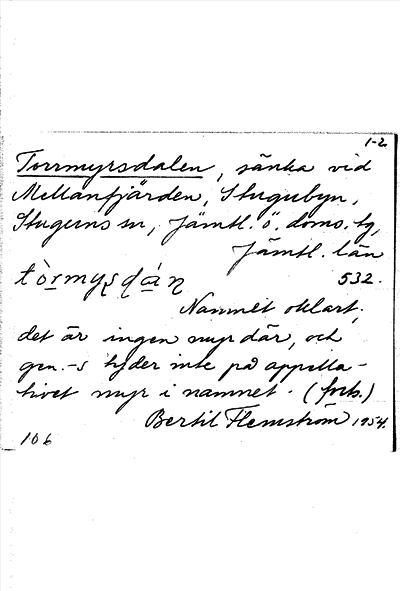 1-2
Torrmyrsdalen, sänka vid
Mellanfjärden, Stugubyn,
Stuguns sn, Jämtl. ö. doms. tg,
Jämtl. län
532.
Namnet oklart,
det är ingen myr där, och
gen. -s tyder inte på appella-
tivet myr i namnet. (forts.)
Bertil Flemström 1954.
106